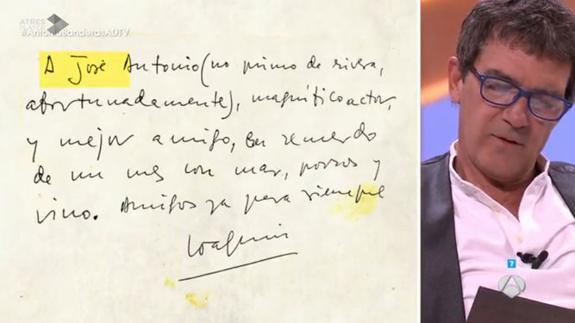 ATRES
PLAYER
#AntonioBanderasADTV
A José Antonio (no primo de rivera,
afortunadamente), magnífico actor,
y mejor amigo, en recuerdo
de un mes con mar, porros y
vino. Amigos ya para siempre
Joaquin
7